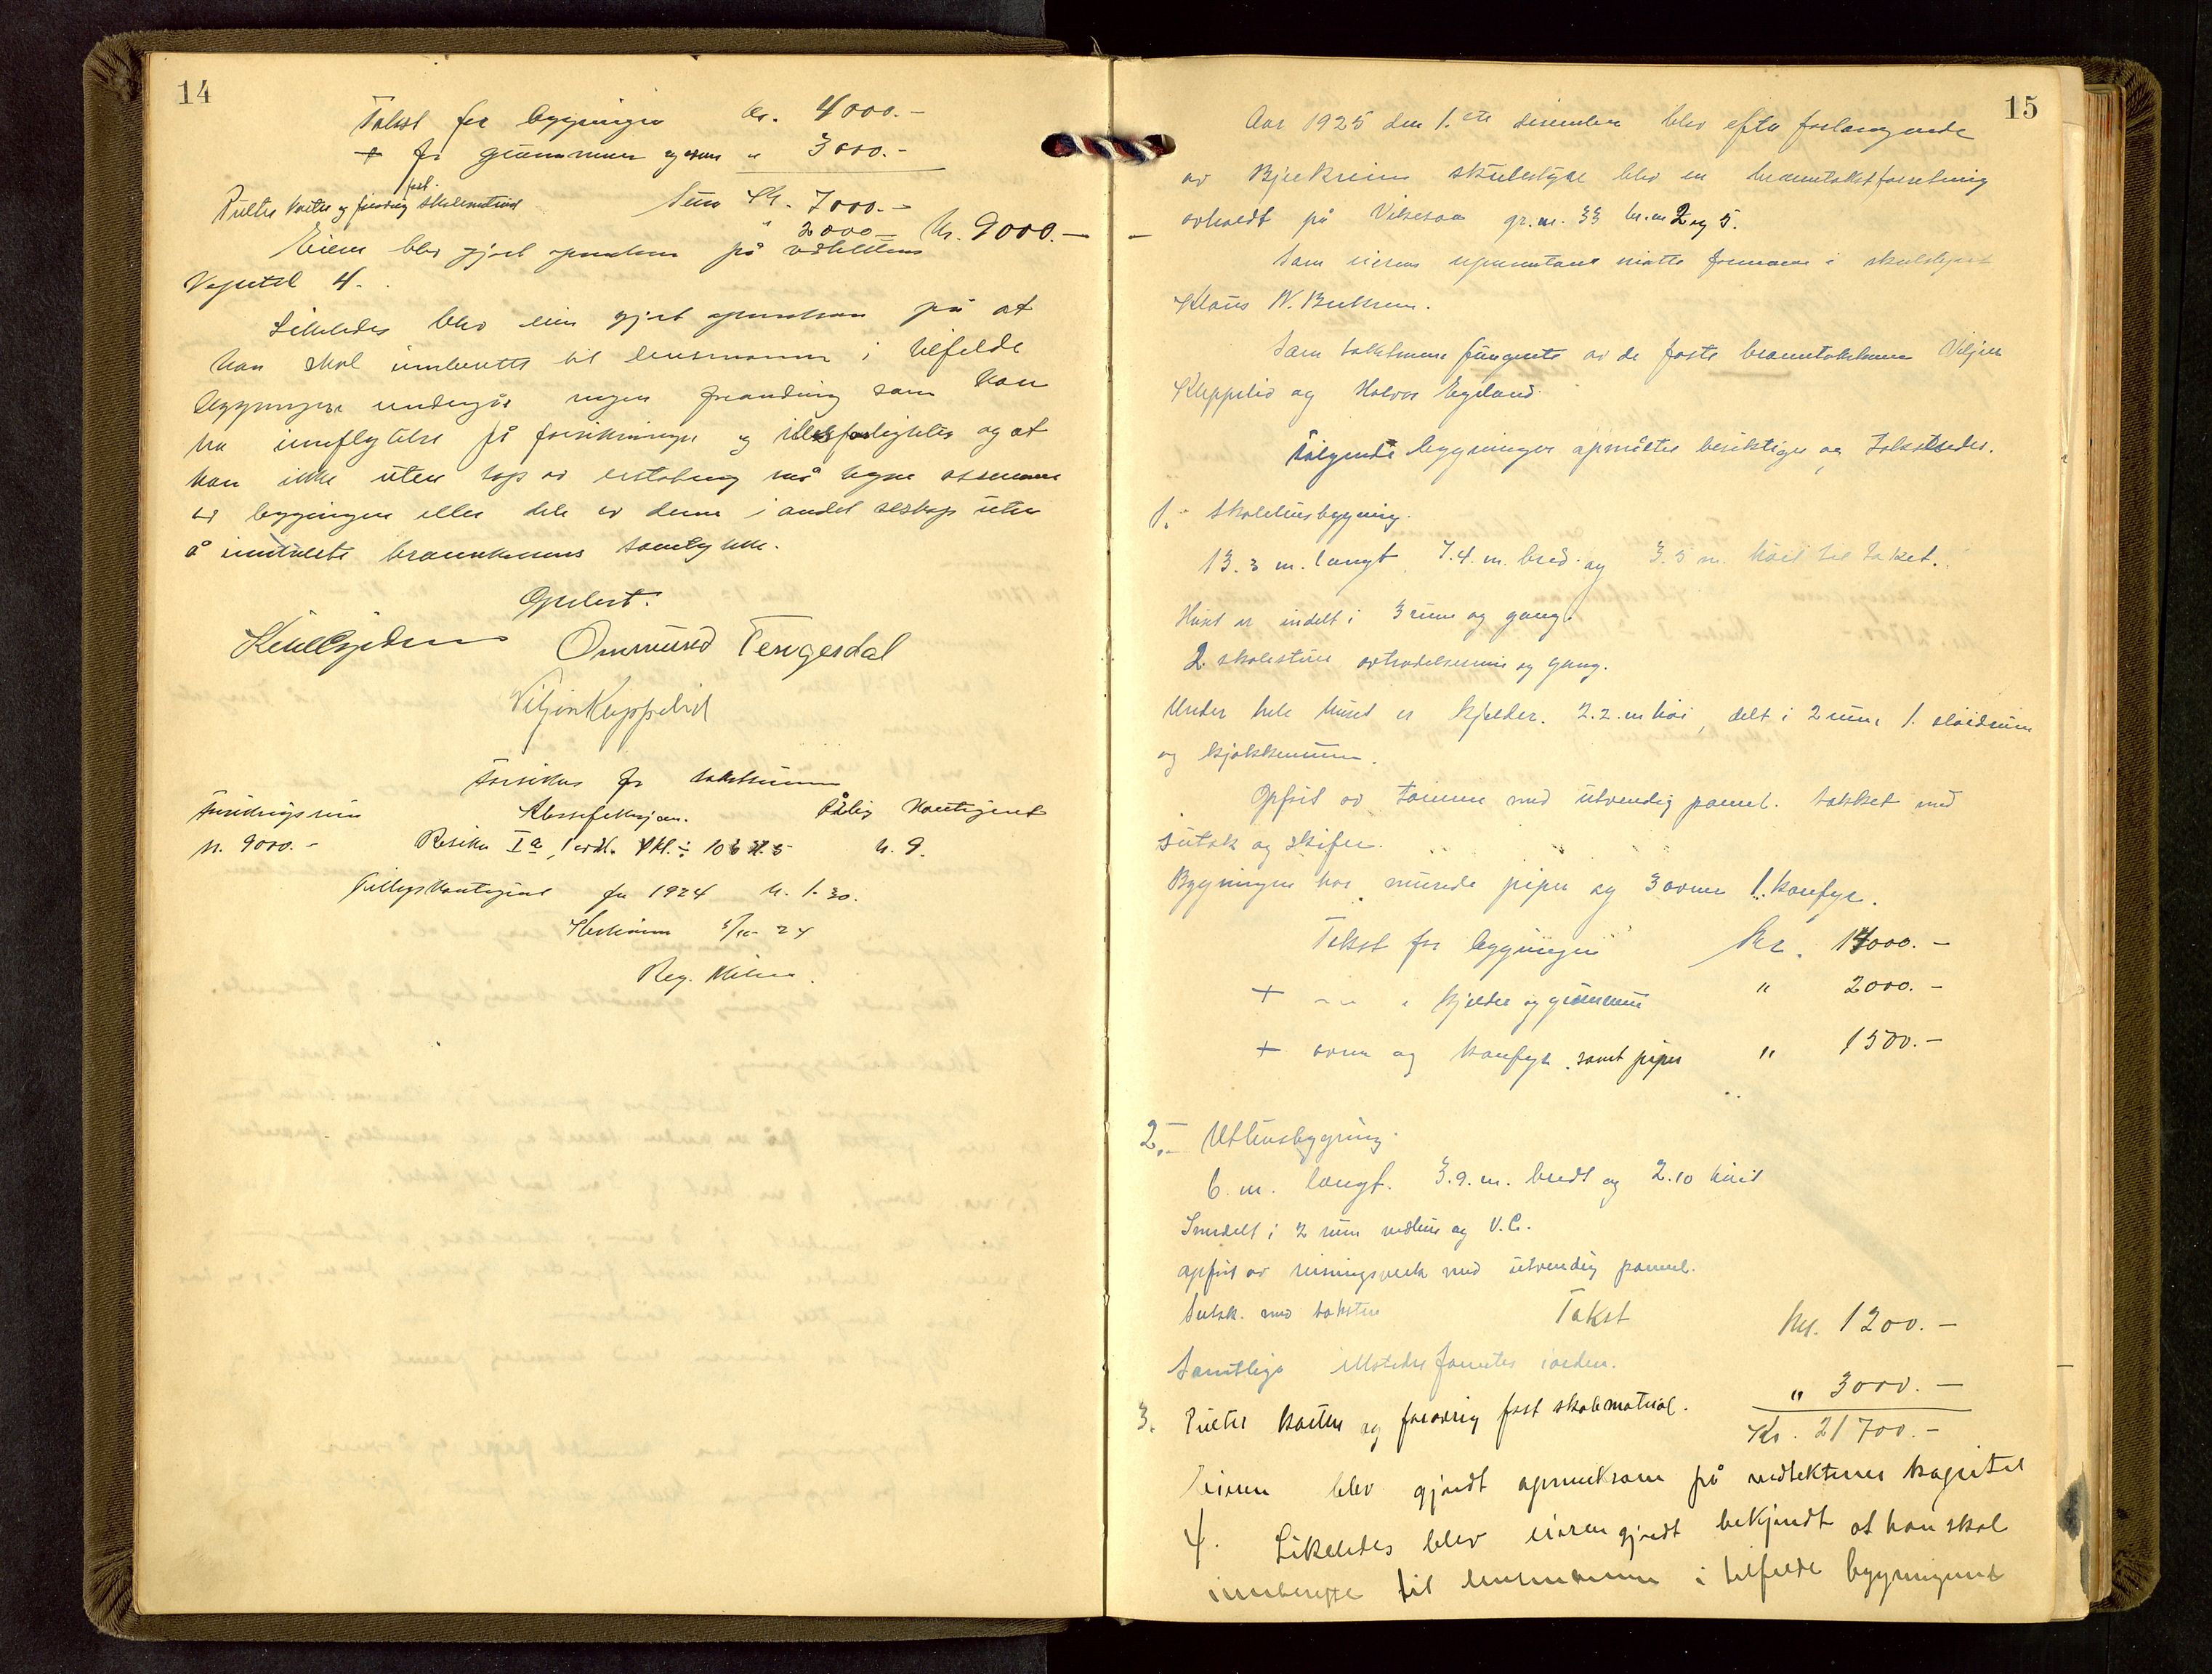 14
Takst for bygningen kr. 4000.-
+ for grunnmur og ovne " 3000.-
Sum Kr. 7000.-
fast
Pulter karter og forøvrig skolemateriel " 2000.- Kr. 9000.-
Eieren blev gjort opmerksom på vedtektenes
Kapitel 4.
Likeledes blev eier gjort opmerksom på at
han skal innberette til lensmannen i tilfelde
bygningen undergår nogen forandring som kan
ha innflytelse på forsikringen og ildsfarligheten og at
han ikke uten tap av erstatning må tegne assuranse
på bygningen eller dele av denne i andet selskap uten
å innhente brannkassens samtykke.
Oplest.
Ommund Tengesdal
Viljen Kuppelid
Forsikres for takstsummen
Forsikringssum Klassifikasjon. Årlig Kontigent
kr. 9000.- Risiko Ia, 1 avd. kr. 9.
Tillegskontigent for 1924 kr. 1.30.
15
Aar 1925 den 1.ste desember blev efter forlangende
av Bjerkreim skulestyre blev en branntakstforretning
avholdt på Vikesaa gr.nr. 33 br.nr 2 og 5.
Som eierens representant møtte formann i skulestyret
Klaus W. Birkrem.
Som takstmenn fungerte av de faste branntakstmenn Viljen
Kuppelid og Halvor Egeland.
Følgende bygninger opmåltes besiktiges og takstertes.
1.- Skolehusbygning.
13.3 m. langt 7.4. m. bred. og 3.5 m. høit til taket.
Huset er indelt i 3 rum og gang.
2 skolestuer avtrædelsesrum og gang.
Under hele huset er kjelder. 2.2. m høi, delt i 2 rum, 1. sløidrum
og kjøkkenrum.
Opført av tømmer med utvendig pannel. takket med
sutak og skifer.
Bygningen har murede piper og 3 ovner 1. komfyr.
Takst for bygningen Kr. 14000.-
+ -"- " kjelder og grunnmur " 2000.-
+ ovner og komfyr. samt piper " 1500.-
2.- Uthusbygning.
6. m. langt. 3.9. m. bredt og 2.10 høit
Inndelt i 2 rum vedhus og V.C.
opført av reisningsverk med utvendig pannel.
Sutak. med taksten Takst Kr. 1200.-
Samtlige ildsteder fantes i orden.
3. Pulter karter og forøvrig fast skolematerial. " 3000.-
Kr. 21700.-
Eieren blev gjordt opmerksom på vedtektenes kapitel
4. Likeledes blev eieren gjordt bekjendt at han skal
innberette til lensmannen i tilfelde bygningene